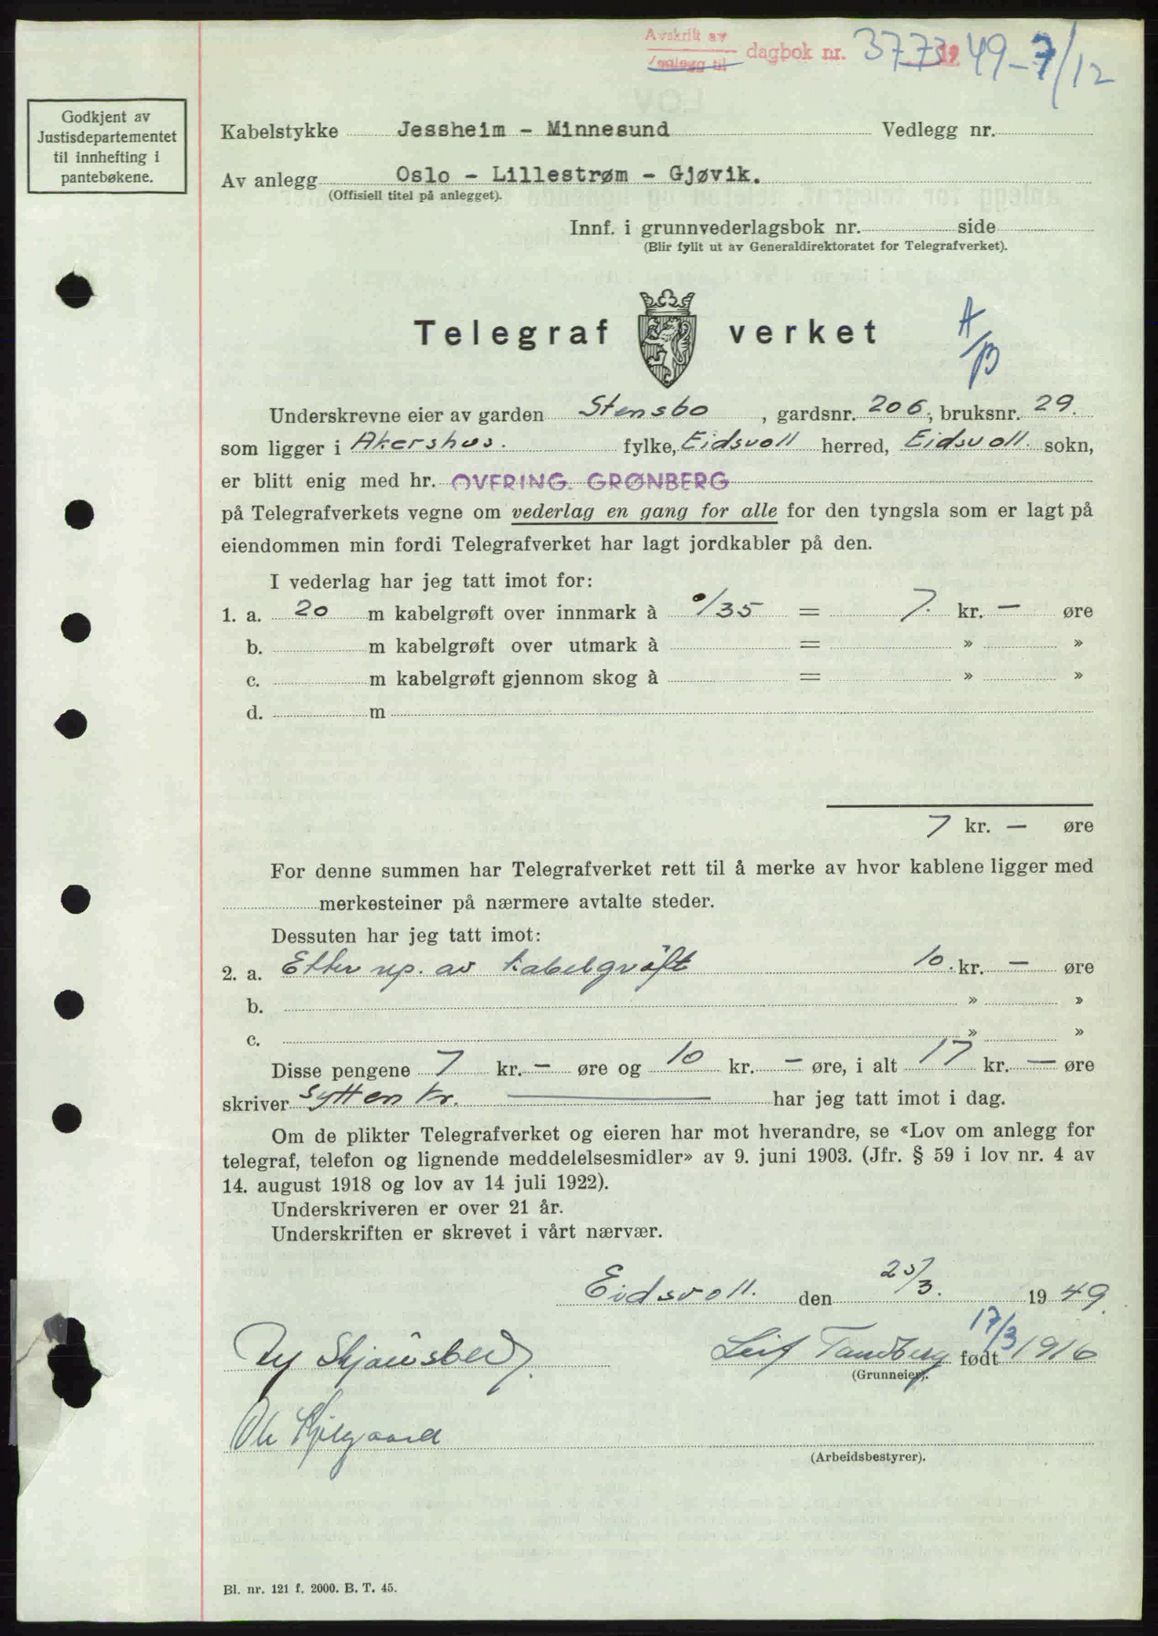 Avskrift av
Vedlegg til dagbok nr. 3773 19 49-7/12
Godkjent av
Justisdepartementet
til innhefting i
pantebøkene.
Kabelstykke Jessheim - Minnesund Vedlegg nr.
Av anlegg Oslo - Lillestrøm - Gjøvik.
(Offisiell titel på anlegget).
Innf. i grunnvederlagsbok nr. side
(Blir fylt ut av Generaldirektoratet for Telegrafverket).
Telegraf verket
A/B
Underskrevne eier av garden Stensbo, gardsnr. 206, bruksnr. 29.
som ligger i Akershus. fylke, Eidsvoll herred, Eidsvoll. sokn,
er blitt enig med hr. OVERING. GRØNBERG
på Telegrafverkets vegne om vederlag en gang for alle for den tyngsla som er lagt på
eiendommen min fordi Telegrafverket har lagt jordkabler på den.
I vederlag har jeg tatt imot for:
1. a. 20 m kabelgrøft over innmark à -/35 = 7. kr. — øre
b. m kabelgrøft over utmark à = » »
c. m kabelgrøft gjennom skog à = » »
d. m
7 kr. — øre
For denne summen har Telegrafverket rett til å merke av hvor kablene ligger med
merkesteiner på nærmere avtalte steder.
Dessuten har jeg tatt imot:
2. a. Etter rep. av kabelgrøft 10. kr. — øre
b. » »
c. » »
Disse pengene 7 kr. — øre og 10 kr. — øre, i alt 17 kr. — øre
skriver Sytten kr. har jeg tatt imot i dag.
Om de plikter Telegrafverket og eieren har mot hverandre, se «Lov om anlegg for
telegraf, telefon og lignende meddelelsesmidler» av 9. juni 1903. (Jfr. § 59 i lov nr. 4 av
14. august 1918 og lov av 14 juli 1922).
Underskriveren er over 21 år.
Underskriften er skrevet i vårt nærvær.
Eidsvoll. den 25/3. 1949.
Leif Tandberg født 17/3 1916
(Grunneier).
(Arbeidsbestyrer).
Bl. nr. 121 f. 2000. B. T. 45.